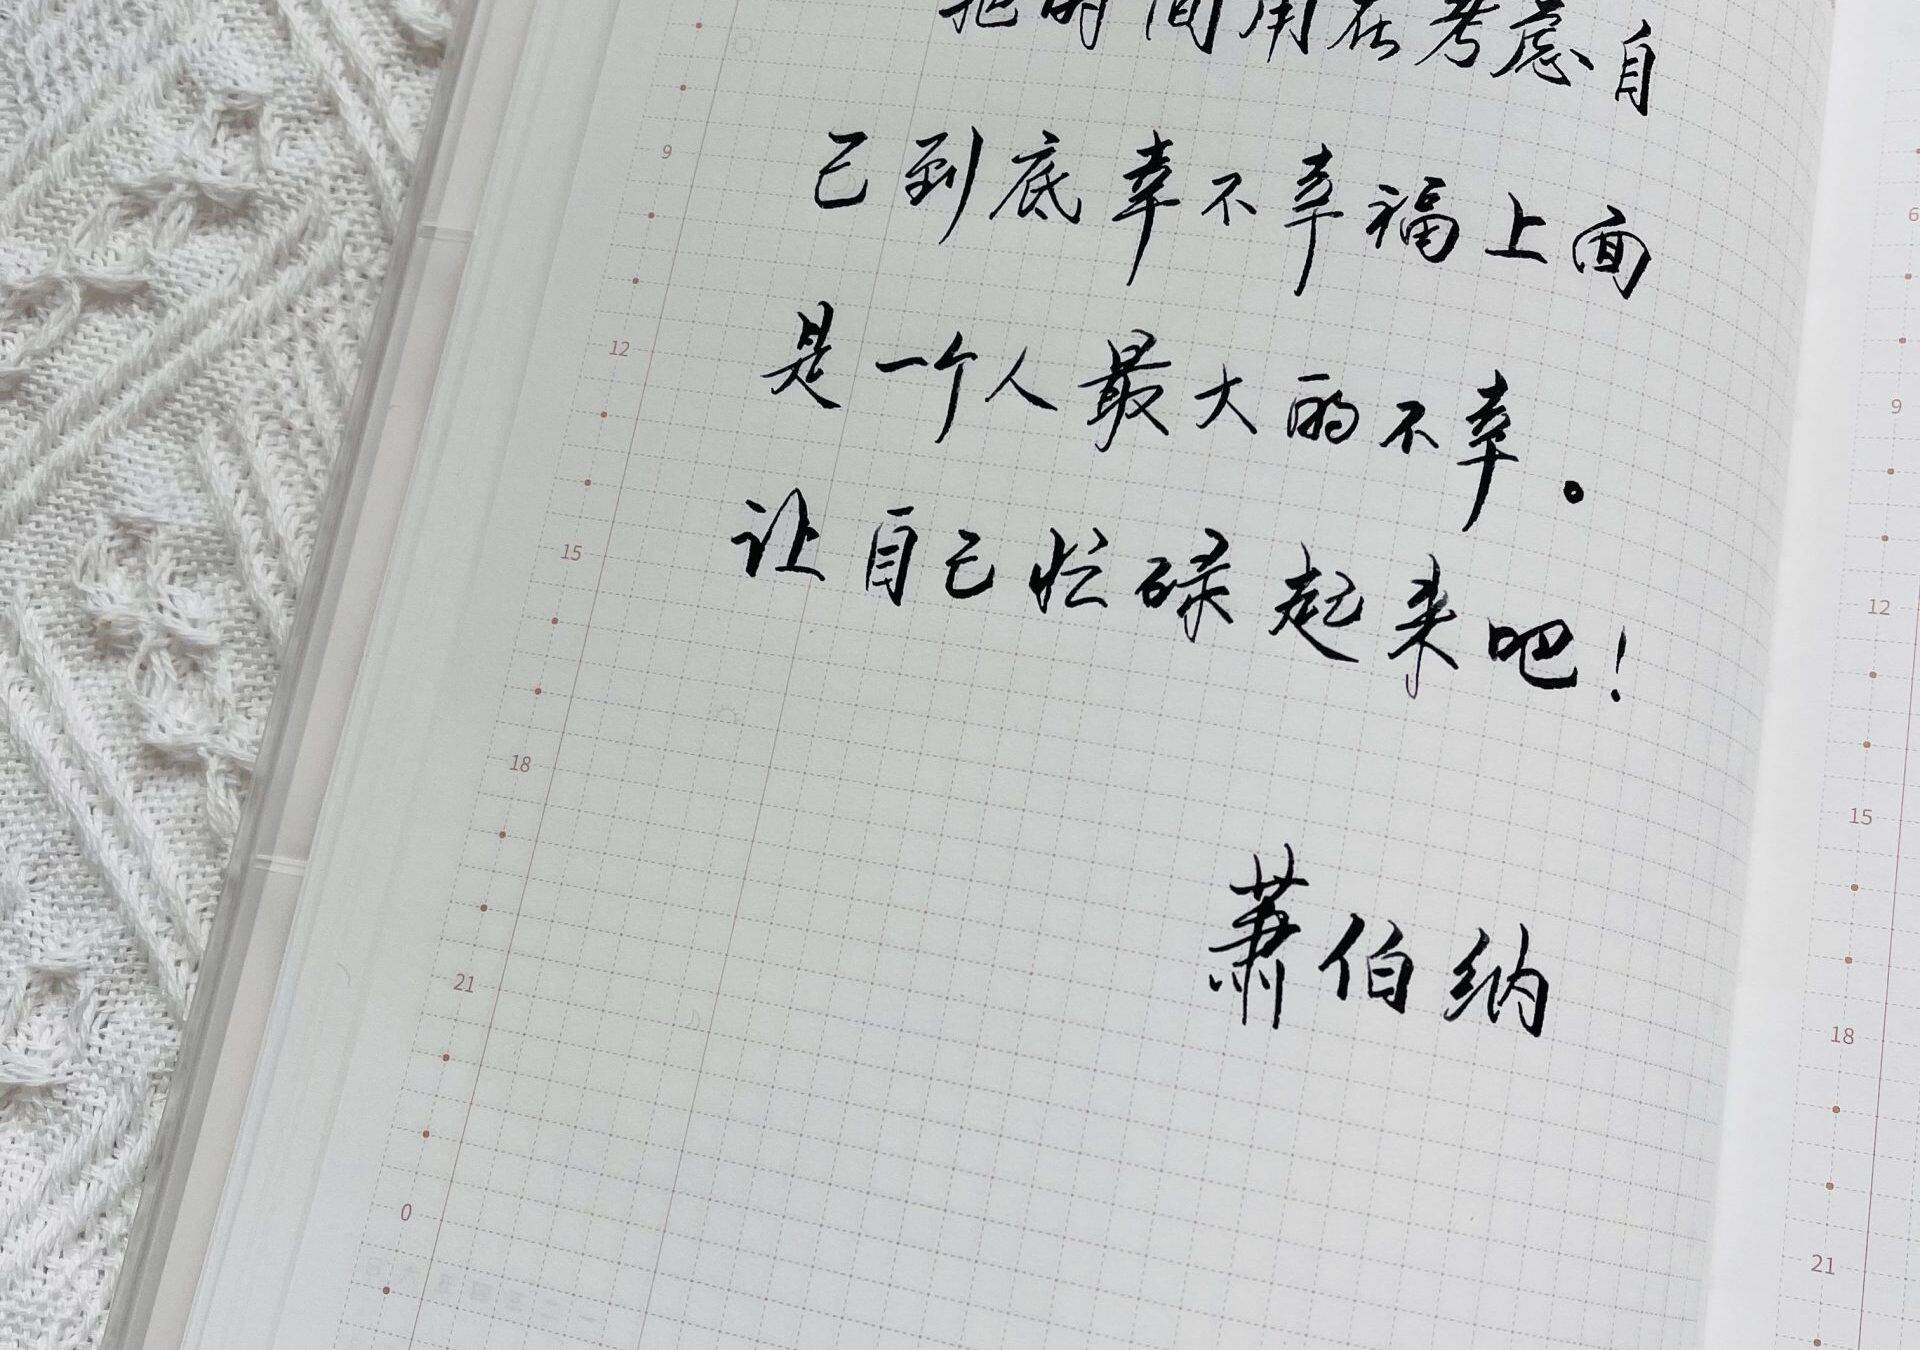 把时间用在考虑自
己到底幸不幸福上面
是一个人最大的不幸。
让自己忙碌起来吧！
萧伯纳
9
12
15
18
21
0
6
9
12
15
18
21